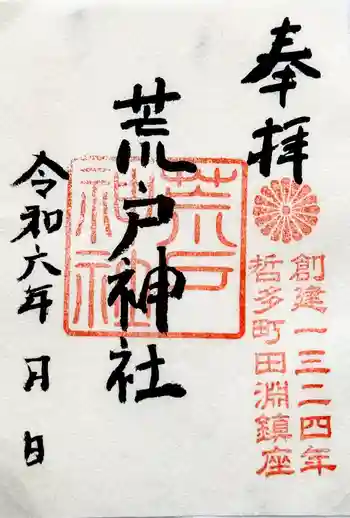 奉拝
創建一三二四年
哲多町田淵鎮座
荒戸神社
荒戸
神社
令和六年 月 日